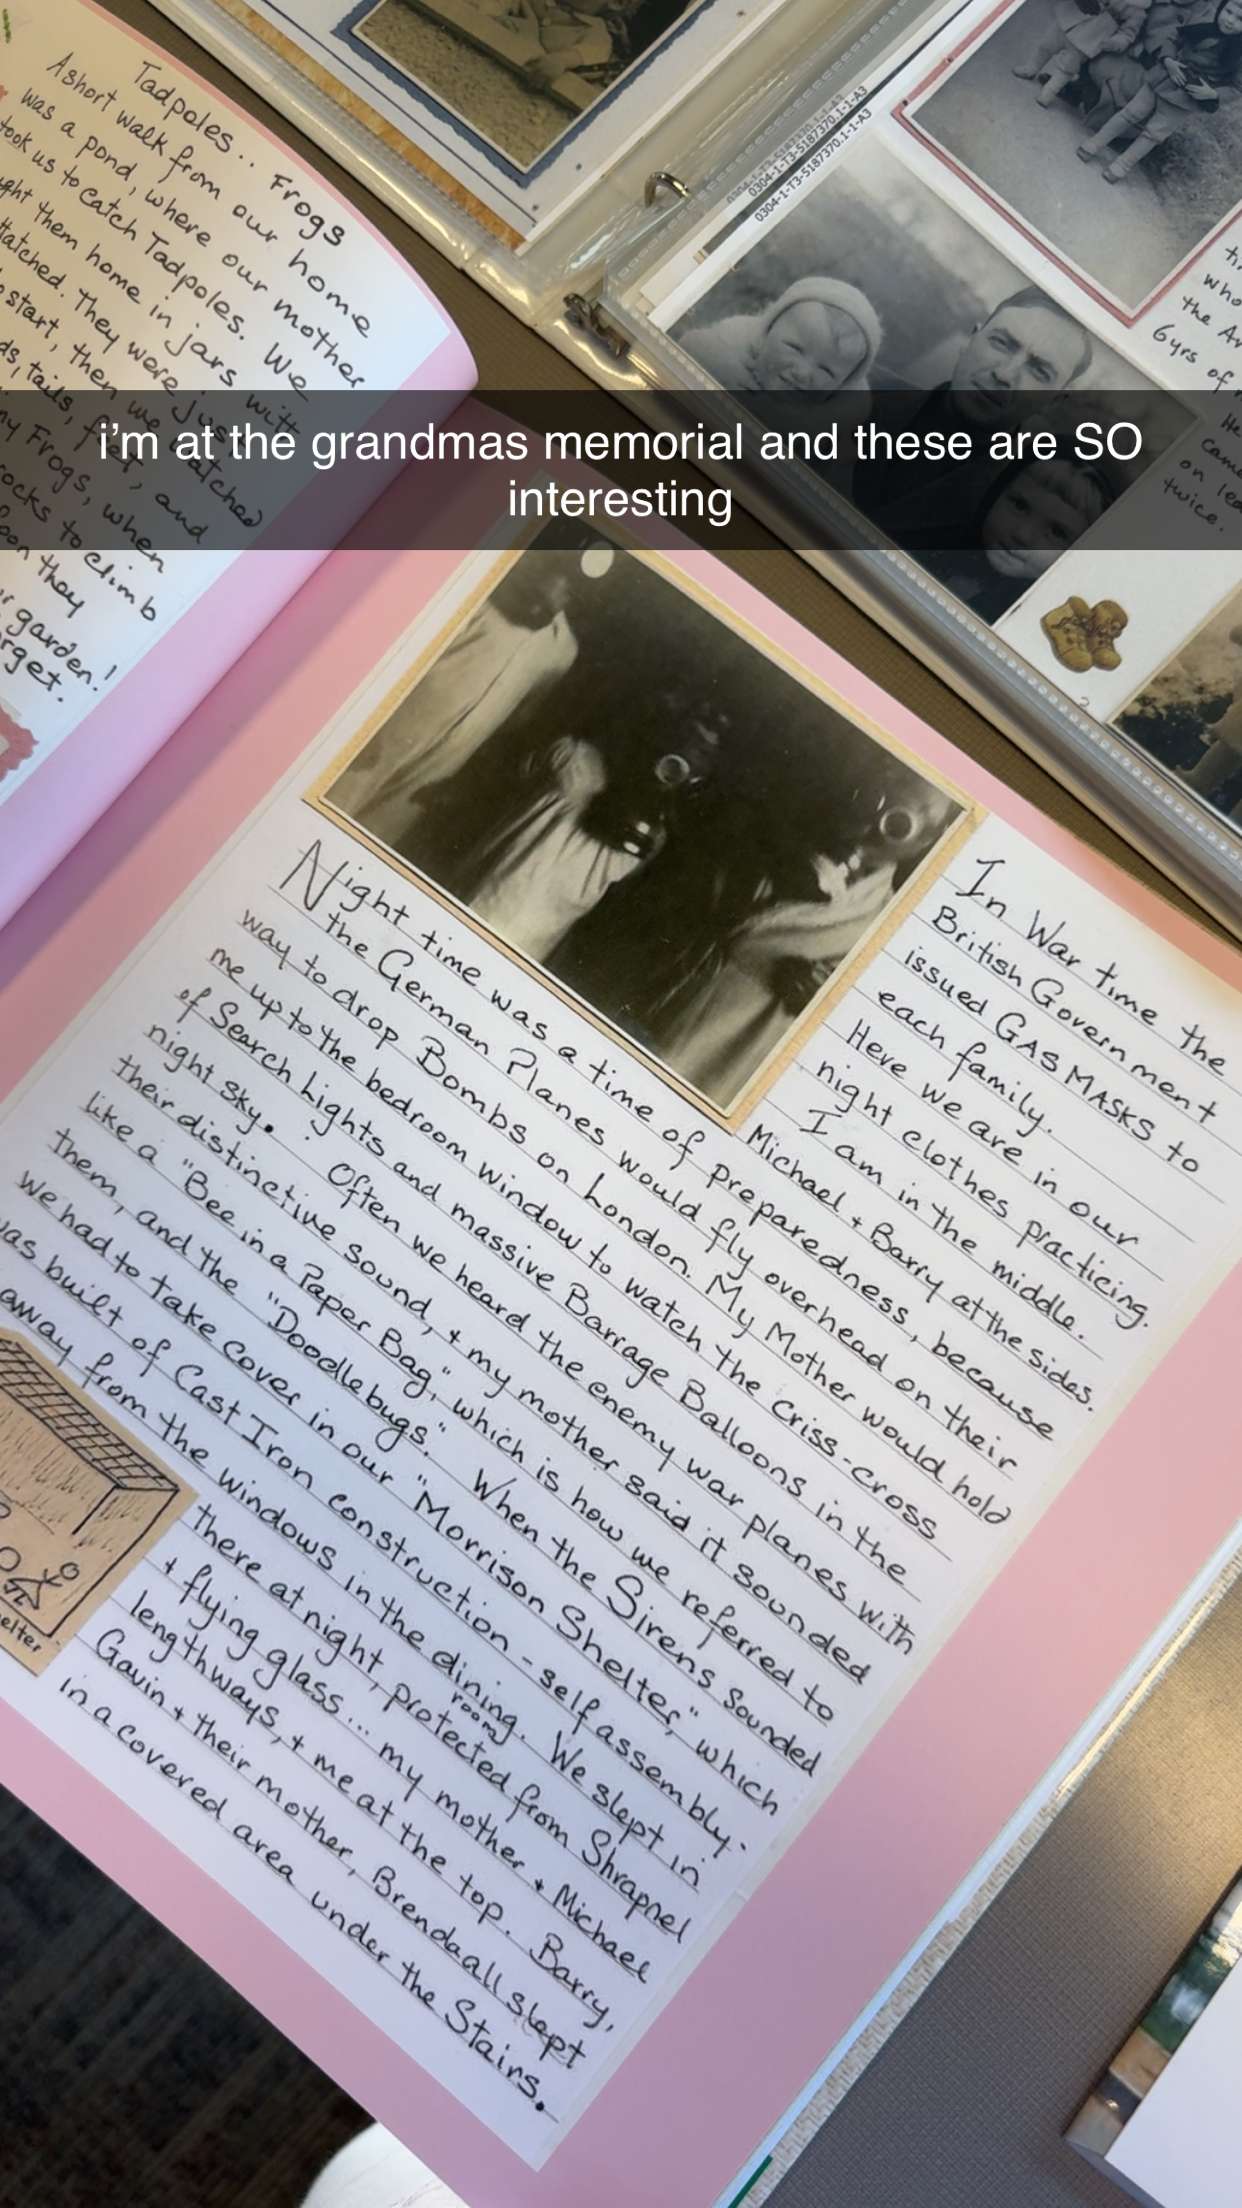 i'm at the grandmas memorial and these are SO
interesting
Tadpoles.. Frogs
A short walk from our home
was a pond, where our mother
took us to catch Tadpoles. We
them home in jars with
Hatched. They were just
start, then we watched
tails, feet, and
Frogs, when
rocks to climb
they
garden!
0304-1-T3-5187370.1-1-A3
0304-1-T3-5187370.1-1-A3
who
the
6yrs of
He
came
on
twice.
In War time the
British Government
issued GAS MASKS to
each family.
Here we are in our
night clothes practicing.
I am in the middle.
Michael + Barry at the sides.
Night time was a time of preparedness, because
the German Planes would fly overhead on their
way to drop Bombs on London. My Mother would hold
me up to the bedroom window to watch the criss-cross
of Search lights and massive Barrage Balloons in the
night sky. Often we heard the enemy war planes with
their distinctive sound, + my mother said it sounded
like a "Bee in a Paper Bag," which is how we referred to
them, and the "Doodlebugs." When the Sirens sounded
we had to take cover in our "Morrison Shelter," which
was built of Cast Iron construction - self assembly.
away from the windows in the dining room. We slept in
there at night, protected from Shrapnel
+ flying glass... my mother + Michael
lengthways, + me at the top. Barry,
Gavin + their mother, Brenda all slept
in a covered area under the Stairs.